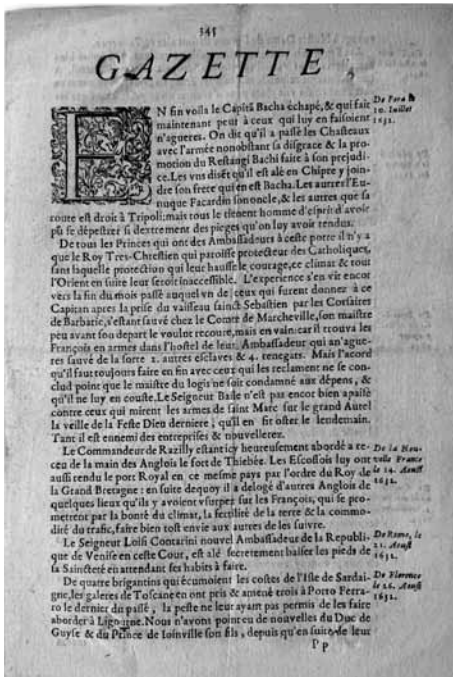 345
GAZETTE
EN fin voila le Capitã Bacha échapé, & qui fait
maintenant peur à ceux qui luy en faisoient
n'agueres. On dit qu'il a passé les Chasteaux
avec l'armée nonobstant sa disgrace & la pro-
motion du Restangi Bachi faite à son prejudi-
ce. Les vns disẽt qu'il est alé en Chipre y join-
dre son frere qui en est Bacha. Les autres l'Eu-
nuque Facardin son oncle, & les autres que sa
route est droit à Tripoli; mais tous le tienent homme d'esprit d'avoir
pû se dépestrer si dextrement des pieges qu'on luy avoit tendus.
De Pera le
10. Juillet
1632.
De tous les Princes qui ont des Ambassadeurs à ceste porte il n'y a
que le Roy Tres-Chrestien qui paroisse protecteur des Catholiques,
sans laquelle protection qui leur hausse le courage, ce climat & tout
l'Orient en suite leur seroit inaccessible. L'experience s'en vit encor
vers la fin du mois passé auquel vn de ceux qui furent donnez à ce
Capitan apres la prise du vaisseau sainct Sebastien par les Corsaires
de Barbarie, s'estant sauvé chez le Comte de Marcheville, son maistre
peu avant son depart le voulut recourre, mais en vain: car il trouva les
François en armes dans l'hostel de leur Ambassadeur qui an'ague-
res sauvé de la sorte 2. autres esclaves & 4. renegats. Mais l'acord
qu'il faut toujours faire en fin avec ceux qui les reclament ne se con-
clud point que le maistre du logis ne soit condamné aux dépens, &
qu'il ne luy en couste. Le Seigneur Baile n'est pas encor bien apaisé
contre ceux qui mirent les armes de saint Marc sur le grand Autel
la veille de la Feste Dieu derniere, qu'il en fit oster le lendemain.
Tant il est ennemi des entreprises & nouvelletez.
Le Commandeur de Razilly estant icy heureusement abordé a re-
ceu de la main des Anglois le fort de Thiebée. Les Escossois luy ont
aussi rendu le port Royal en ce mesme pays par l'ordre du Roy de
la Grand Bretagne: en suite dequoy il a delogé d'autres Anglois de
quelques lieux qu'ils y avoient vsurpez sur les François, qui se pro-
mettent par la bonté du climat, la fertilité de la terre & la commo-
dité du trafic, faire bien tost envie aux autres de les suivre.
De la Nou-
velle France
le 14. Aoust
1632.
Le Seigneur Loisi Contarini nouvel Ambassadeur de la Republi-
que de Venise en ceste Cour, est alé secretement baiser les pieds de
sa Saincteté en attendant ses habits à faire.
De Rome, le
21. Aoust
1632.
De quatre brigantins qui écumoient les costes de l'Isle de Sardai-
gne, les galeres de Toscane en ont pris & amené trois à Porto Ferra-
ro le dernier du passé, la peste ne leur ayant pas permis de les faire
aborder à Ligourne. Nous n'avons point eu de nouvelles du Duc de
Guyse & du Prince de Ioinville son fils, depuis qu'en suite de leur
De Florence
le 26. Aoust
1632.
Pp